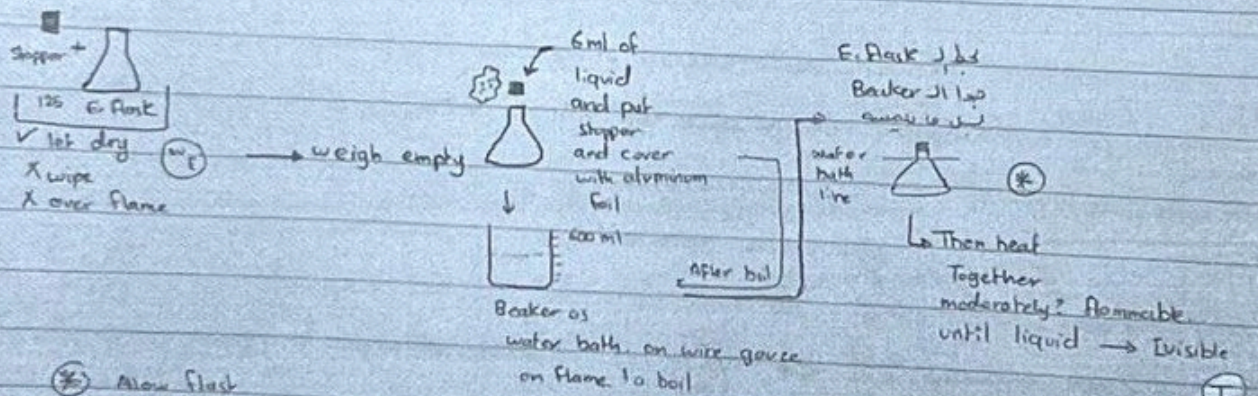 Stopper +
125 E. flask
✓ let dry
X wipe
X over flame
weigh empty
6ml of
liquid
and put
stopper
and cover
with aluminom
foil
600 ml
Beaker as
water bath. on wire gauze
on flame to boil
After boil
E. flask
Beaker ال جوا
water
bath
line
*
Then heat
Together
moderately? flammable
until liquid → Ivisible
* Allow flask
T